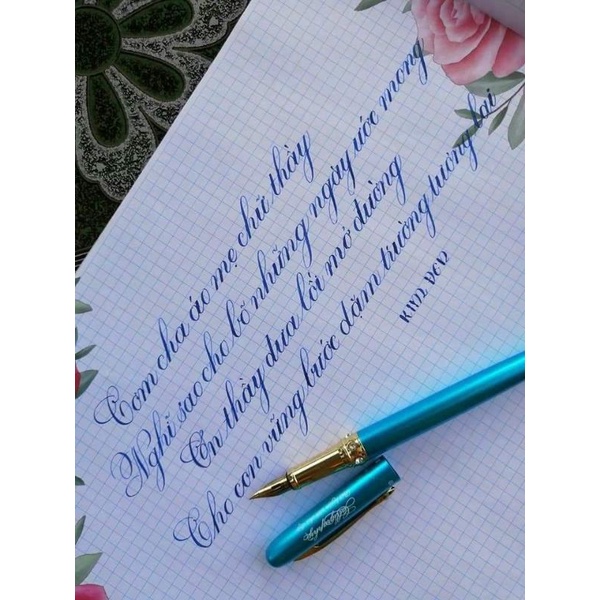 Cơm cha áo mẹ chữ thầy
Nghĩ sao cho bõ những ngày ước mong
Ơn thầy đưa lối mở đường
Cho con vững bước dặm trường tương lai